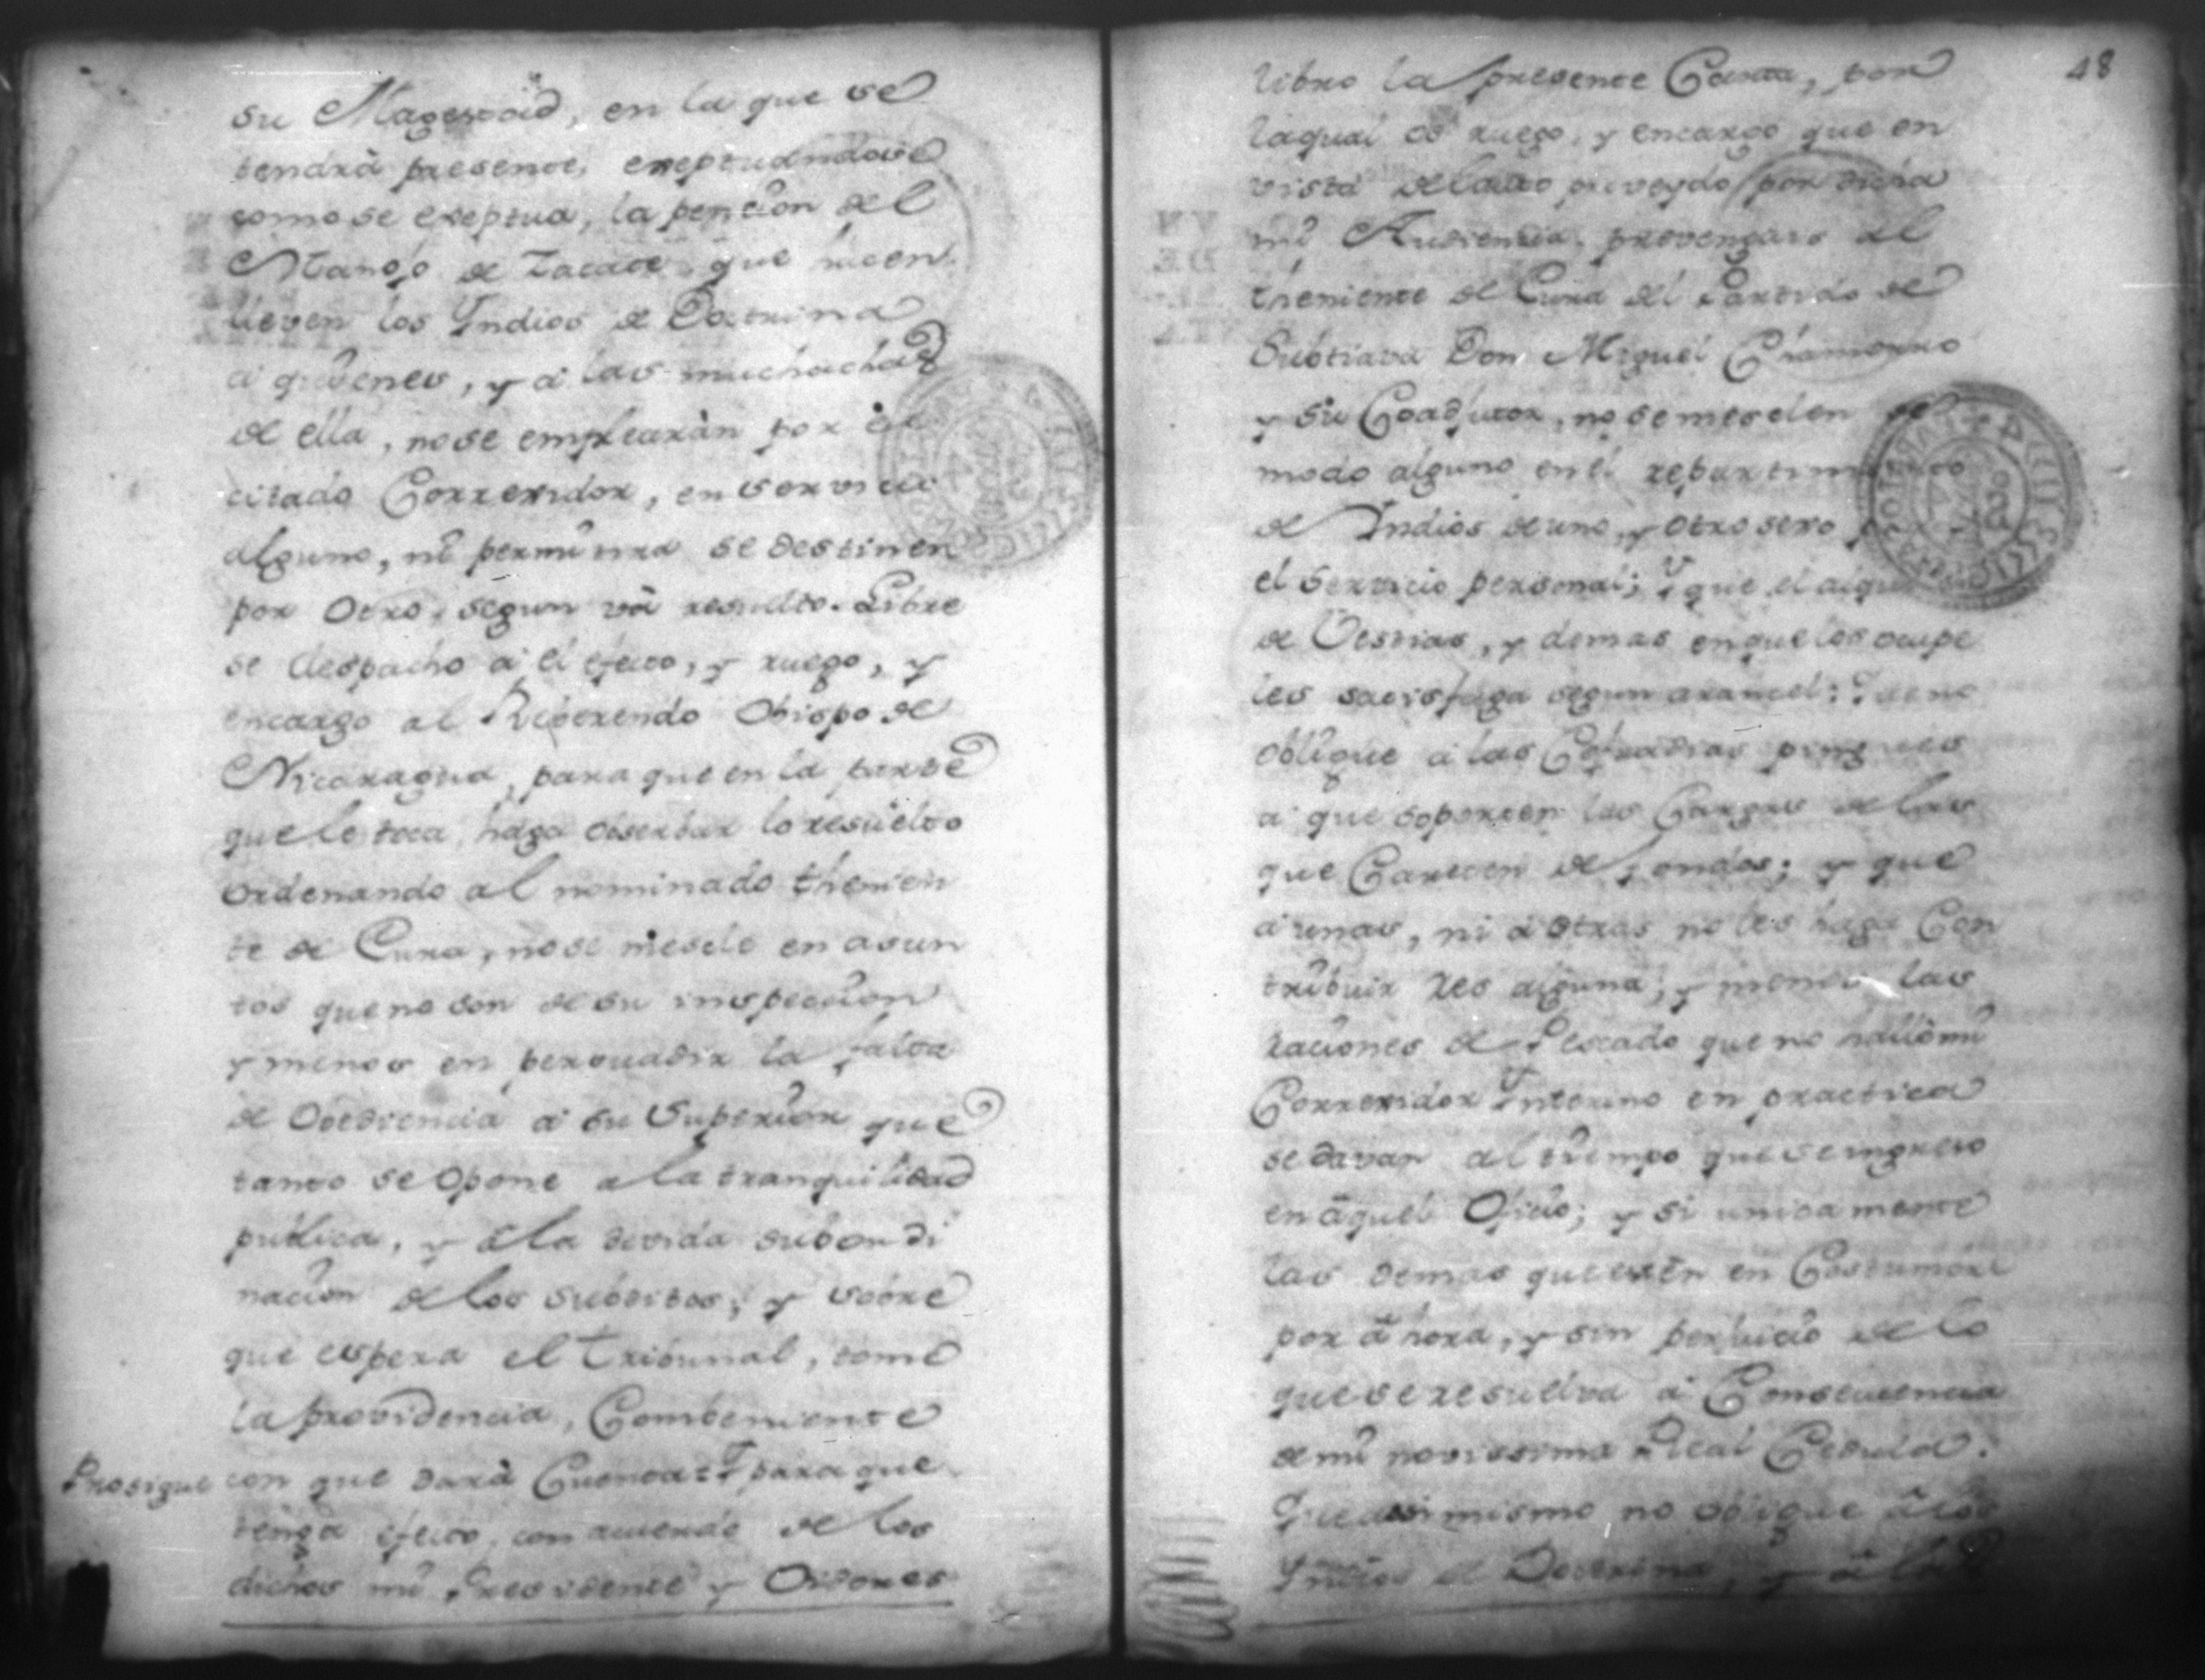 su Magestad, en la que se
tendrà presente, exeptuandose
como se exeptua, la pencion del
Manojo de Zacate que hacen
lleven los Indios de Doctrina
a quienes, y a las muchachas
de ella, no se emplearàn por el
citado Corregidor, en servicio
alguno, ni permitirà se destinen
por otro, segun và resuelto. Librese
despacho a el efecto, y ruego, y
encargo al Reverendo Obispo de
Nicaragua, para que en la parte
que le toca haga observar lo resuelto
ordenando al nominado thenien
te de Cura, no se mescle en asun
tos que no son de su inspeccion
y menos en persuadir la falta
de obediencia a su Superior que
tanto se opone a la tranquilidad
publica, y a la devida subordi
nacion de los subditos; y sobre
que espera el Tribunal, tome
la providencia, Combeniente
Prosigue con que darà Cuenta: Y para que
tenga efecto, con acuerdo de los
dichos mi Presidente y Oidores
48
libro la presente Carta, por
la qual os ruego, y encargo que en
vista del auto proveydo por dicha
mi Audiencia, prevengais al
theniente de Cura del Partido de
Subtiava Don Miguel Chamorro
y su Coadjutor, no se mesclen de
modo alguno en el repartimiento
de Indios de uno, y otro sexo
el Servicio personal; Y que el alqu
de Vestias, y demas en que los ocupe
les satisfaga segun arancel: Que no
obligue a las Cofradias pingues
a que soporten las Cargas de las
que Carecen de fondos; y que
a unas, ni a otras no les haga Con
tribuir res alguna; y menos las
raciones de Pescado que no hallò mi
Corregidor Interino en practica
se davan al tiempo que se ingreso
en aquel Oficio; y si unicamente
las demas que estèn en Costumbre
por ahora, y sin perjuicio de lo
que se resuelva a Consecuencia
de mi novissima Real Cedula.
Que assimismo no obligue a los
Indios de Doctrina, y a las